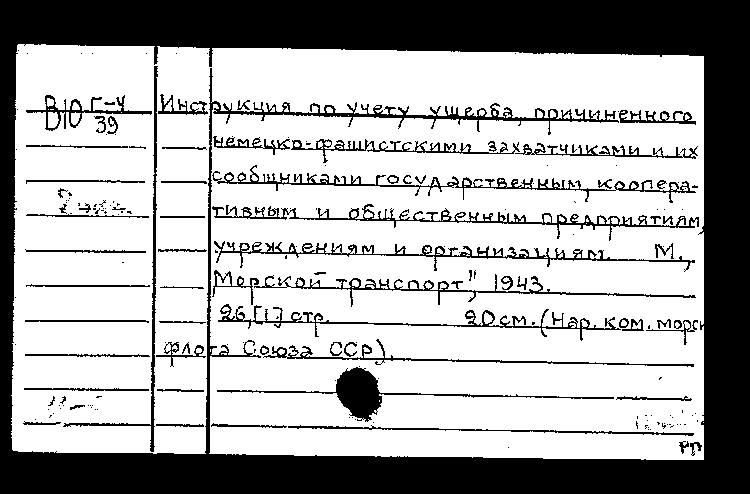 В10 Г-4/39 Инструкция по учету ущерба, причиненного
немецко-фашистскими захватчиками и их
сообщниками государственным, коопера-
2 экз. тивным и общественным предприятиям,
учреждениям и организациям. М.,
"Морской транспорт", 1943.
26,[1] стр. 20 см. (Нар. ком. морск
флота Союза ССР).
РП